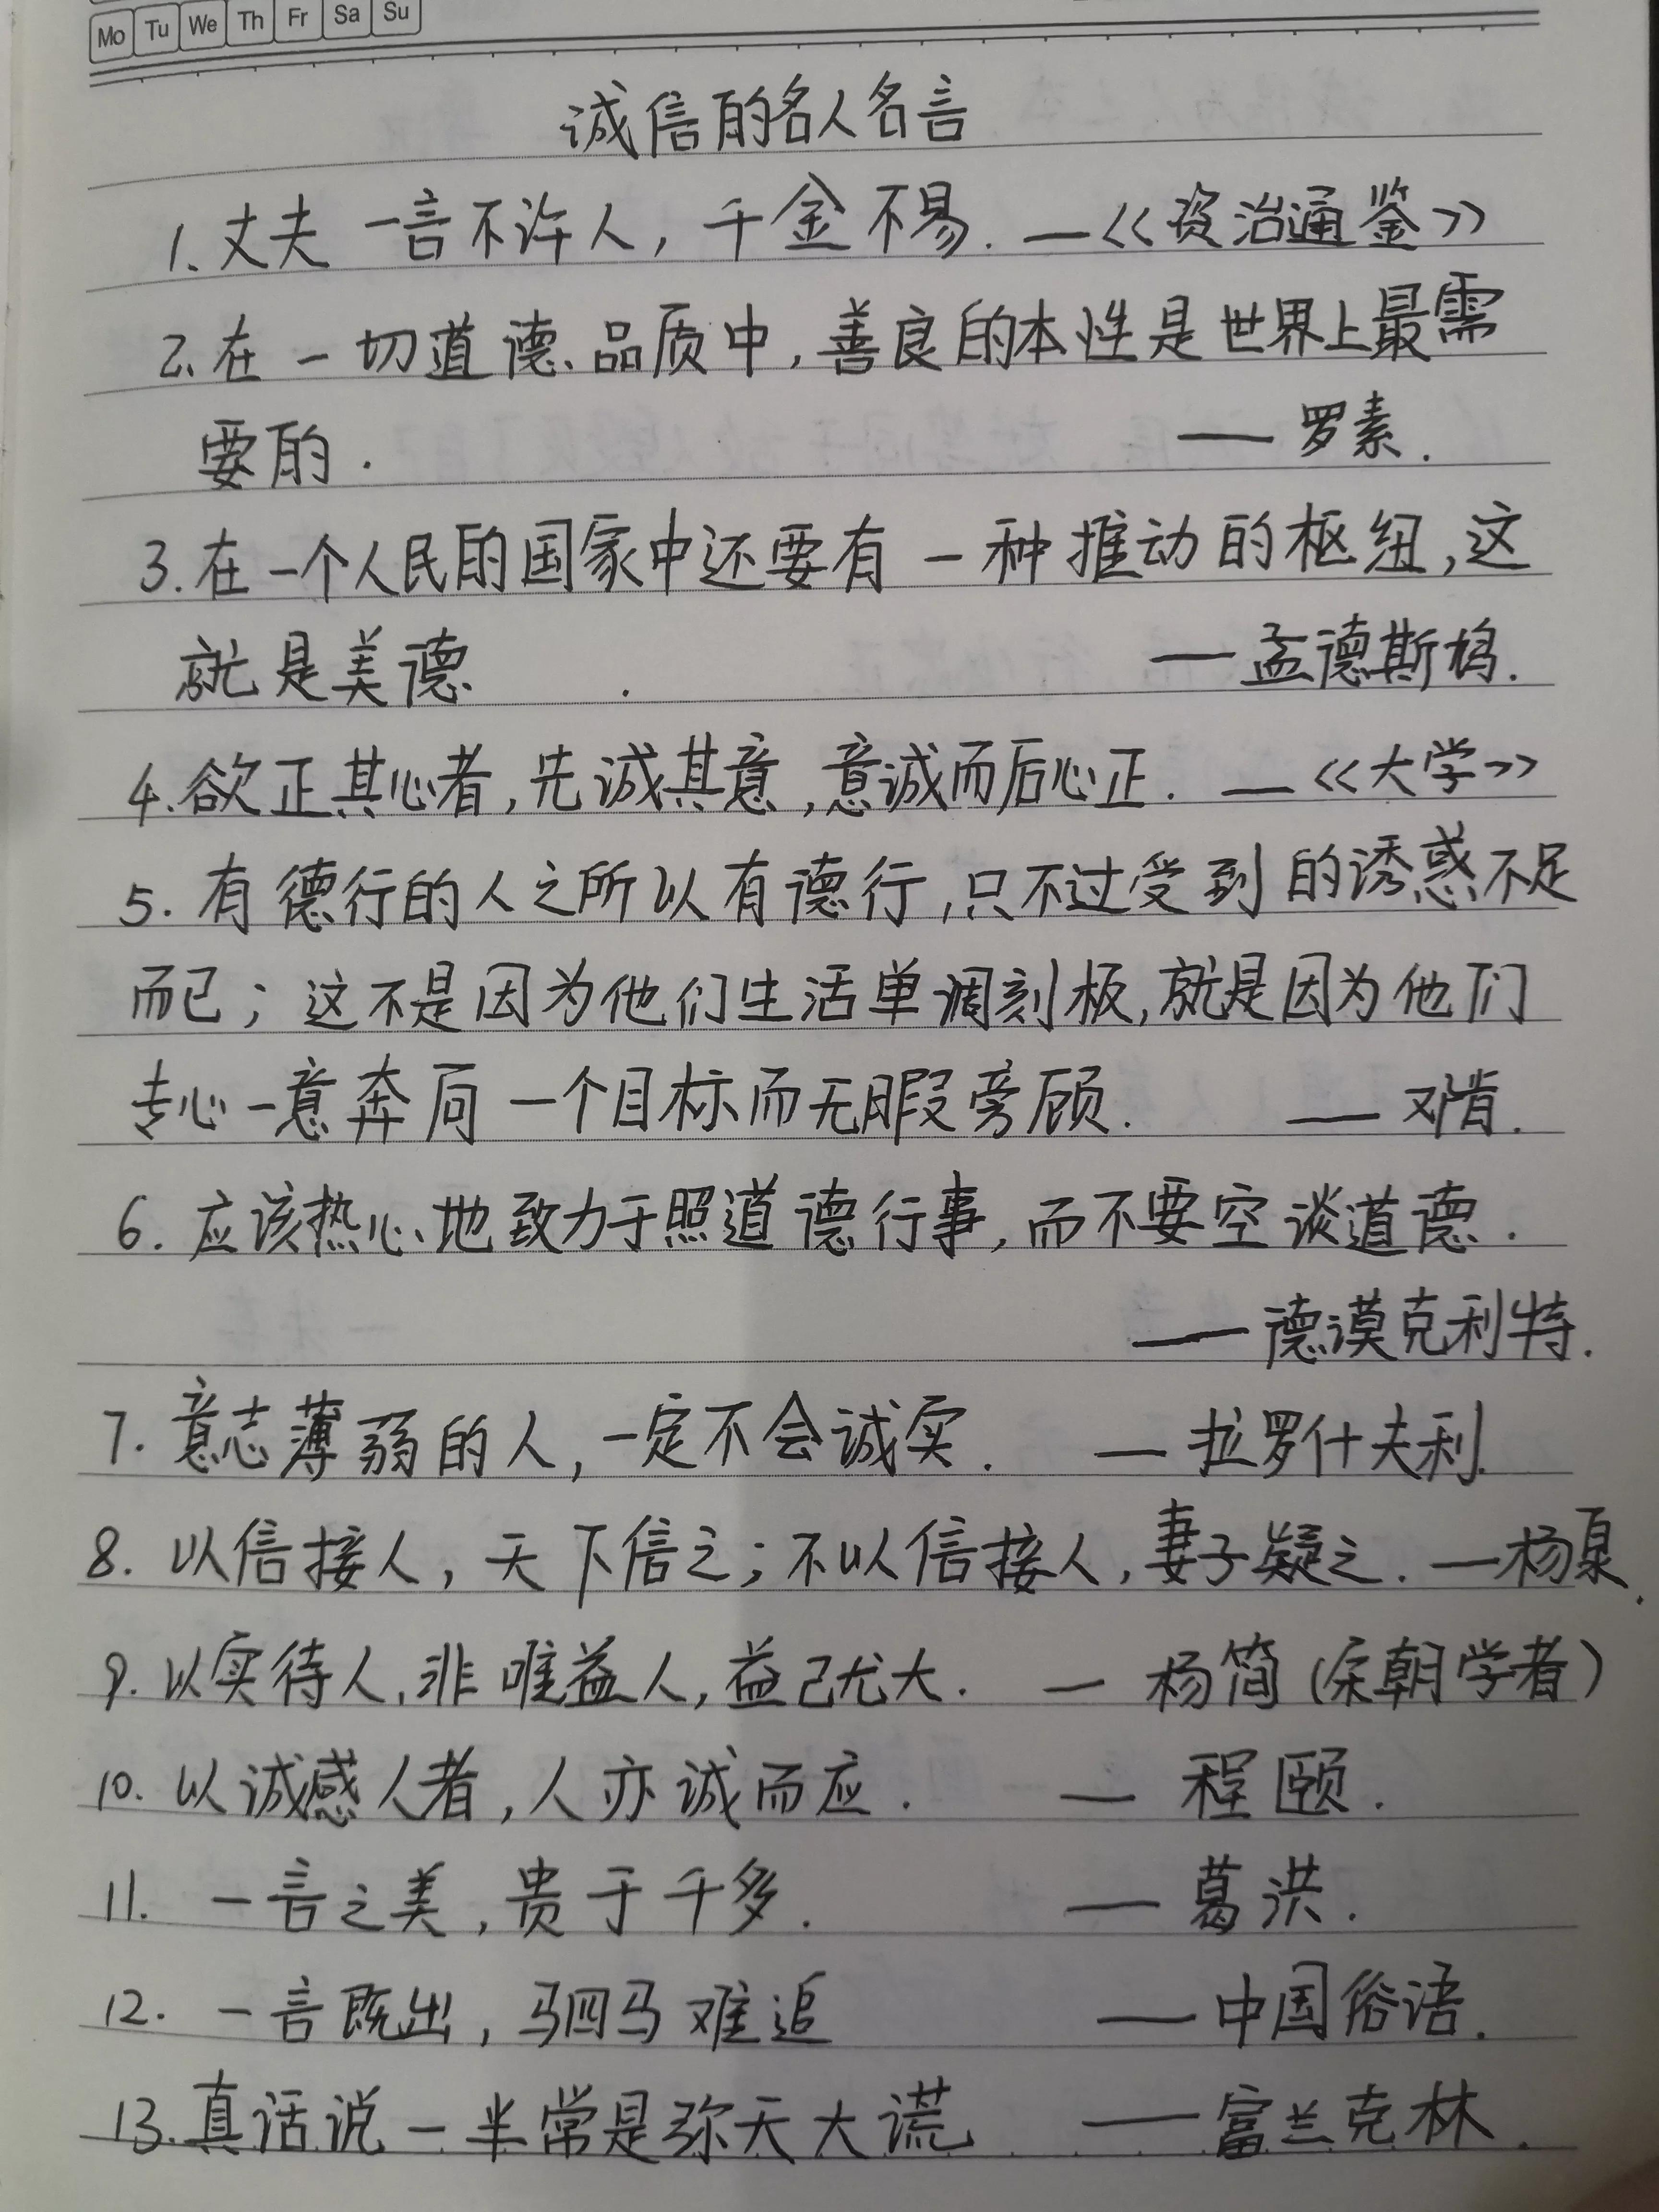 Mo Tu We Th Fr Sa Su
诚信的名人名言
1.丈夫一言不许人,千金不易.—《资治通鉴》
2.在一切道德品质中,善良的本性是世界上最需
要的. ——罗素.
3.在一个人民的国家中还要有一种推动的枢纽,这
就是美德. ——孟德斯鸠.
4.欲正其心者,先诚其意,意诚而后心正.—《大学》
5.有德行的人之所以有德行,只不过受到的诱惑不足
而已;这不是因为他们生活单调刻板,就是因为他们
专心一意奔向一个目标而无暇旁顾. ——邓肯.
6.应该热心地致力于照道德行事,而不要空谈道德.
——德谟克利特.
7.意志薄弱的人,一定不会诚实. —拉罗什夫利.
8.以信接人,天下信之;不以信接人,妻子疑之.—杨泉.
9.以实待人,非唯益人,益己尤大. —杨简(宋朝学者)
10.以诚感人者,人亦诚而应. —程颐.
11.一言之美,贵于千多. —葛洪.
12.一言既出,驷马难追 ——中国俗语.
13.真话说一半常是弥天大谎 ——富兰克林.